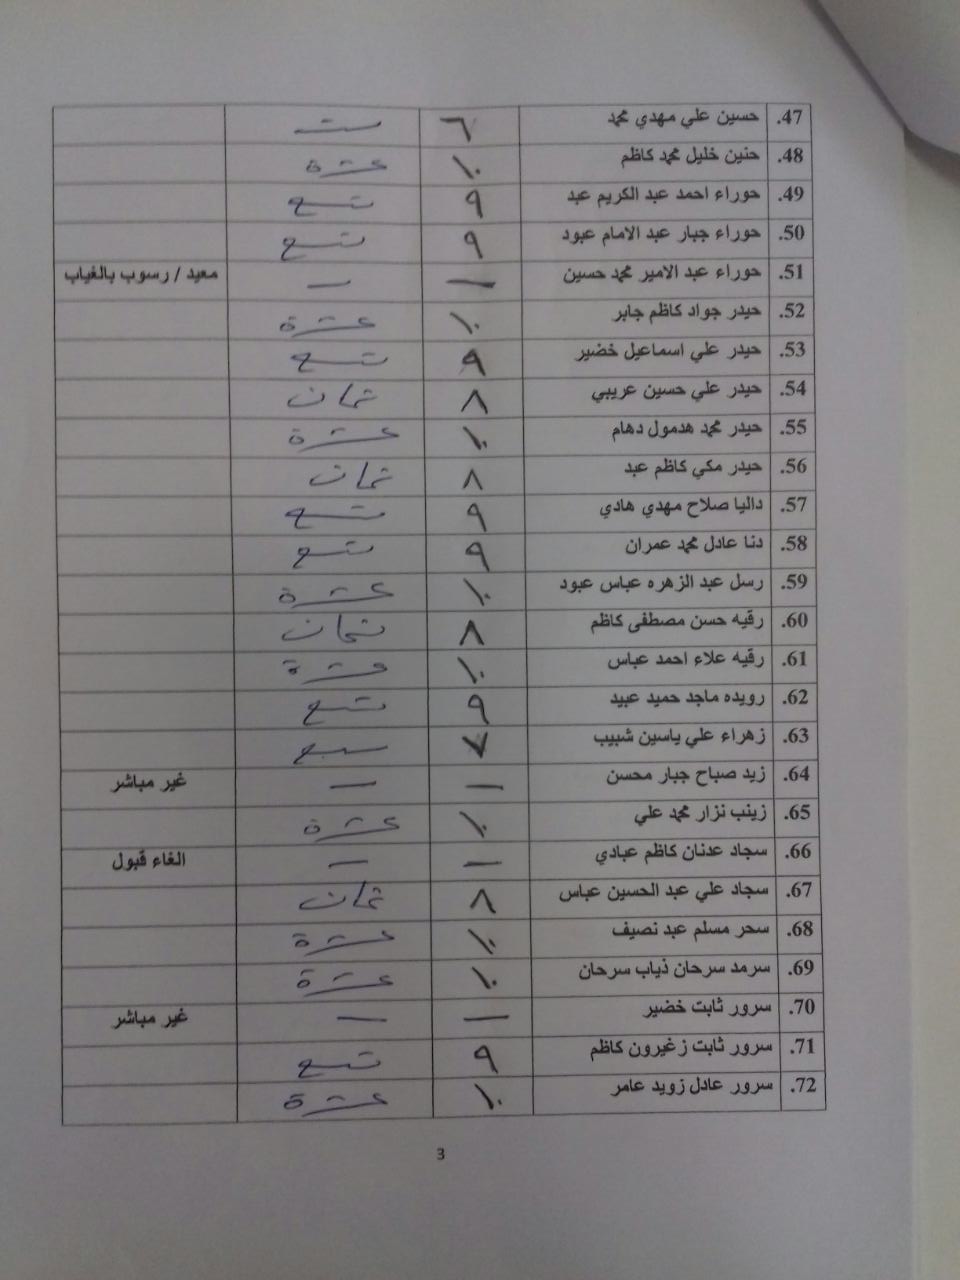 47. حسين علي مهدي محمد ٦ ست
48. حنين خليل محمد كاظم ١٠ عشرة
49. حوراء احمد عبد الكريم عبد ٩ تسع
50. حوراء جبار عبد الامام عبود ٩ تسع
51. حوراء عبد الامير محمد حسين — — معيد / رسوب بالغياب
52. حيدر جواد كاظم جابر ١٠ عشرة
53. حيدر علي اسماعيل خضير ٩ تسع
54. حيدر علي حسين عريبي ٨ ثمان
55. حيدر محمد هدمول دهام ١٠ عشرة
56. حيدر مكي كاظم عبد ٨ ثمان
57. داليا صلاح مهدي هادي ٩ تسع
58. دنا عادل محمد عمران ٩ تسع
59. رسل عبد الزهره عباس عبود ١٠ عشرة
60. رقيه حسن مصطفى كاظم ٨ ثمان
61. رقيه علاء احمد عباس ١٠ عشرة
62. رويده ماجد حميد عبيد ٩ تسع
63. زهراء علي ياسين شبيب ٧ سبع
64. زيد صباح جبار محسن — — غير مباشر
65. زينب نزار محمد علي ١٠ عشرة
66. سجاد عدنان كاظم عبادي — — الغاء قبول
67. سجاد علي عبد الحسين عباس ٨ ثمان
68. سحر مسلم عبد نصيف ١٠ عشرة
69. سرمد سرحان ذياب سرحان ١٠ عشرة
70. سرور ثابت خضير — — غير مباشر
71. سرور ثابت زغيرون كاظم ٩ تسع
72. سرور عادل زويد عامر ١٠ عشرة
3